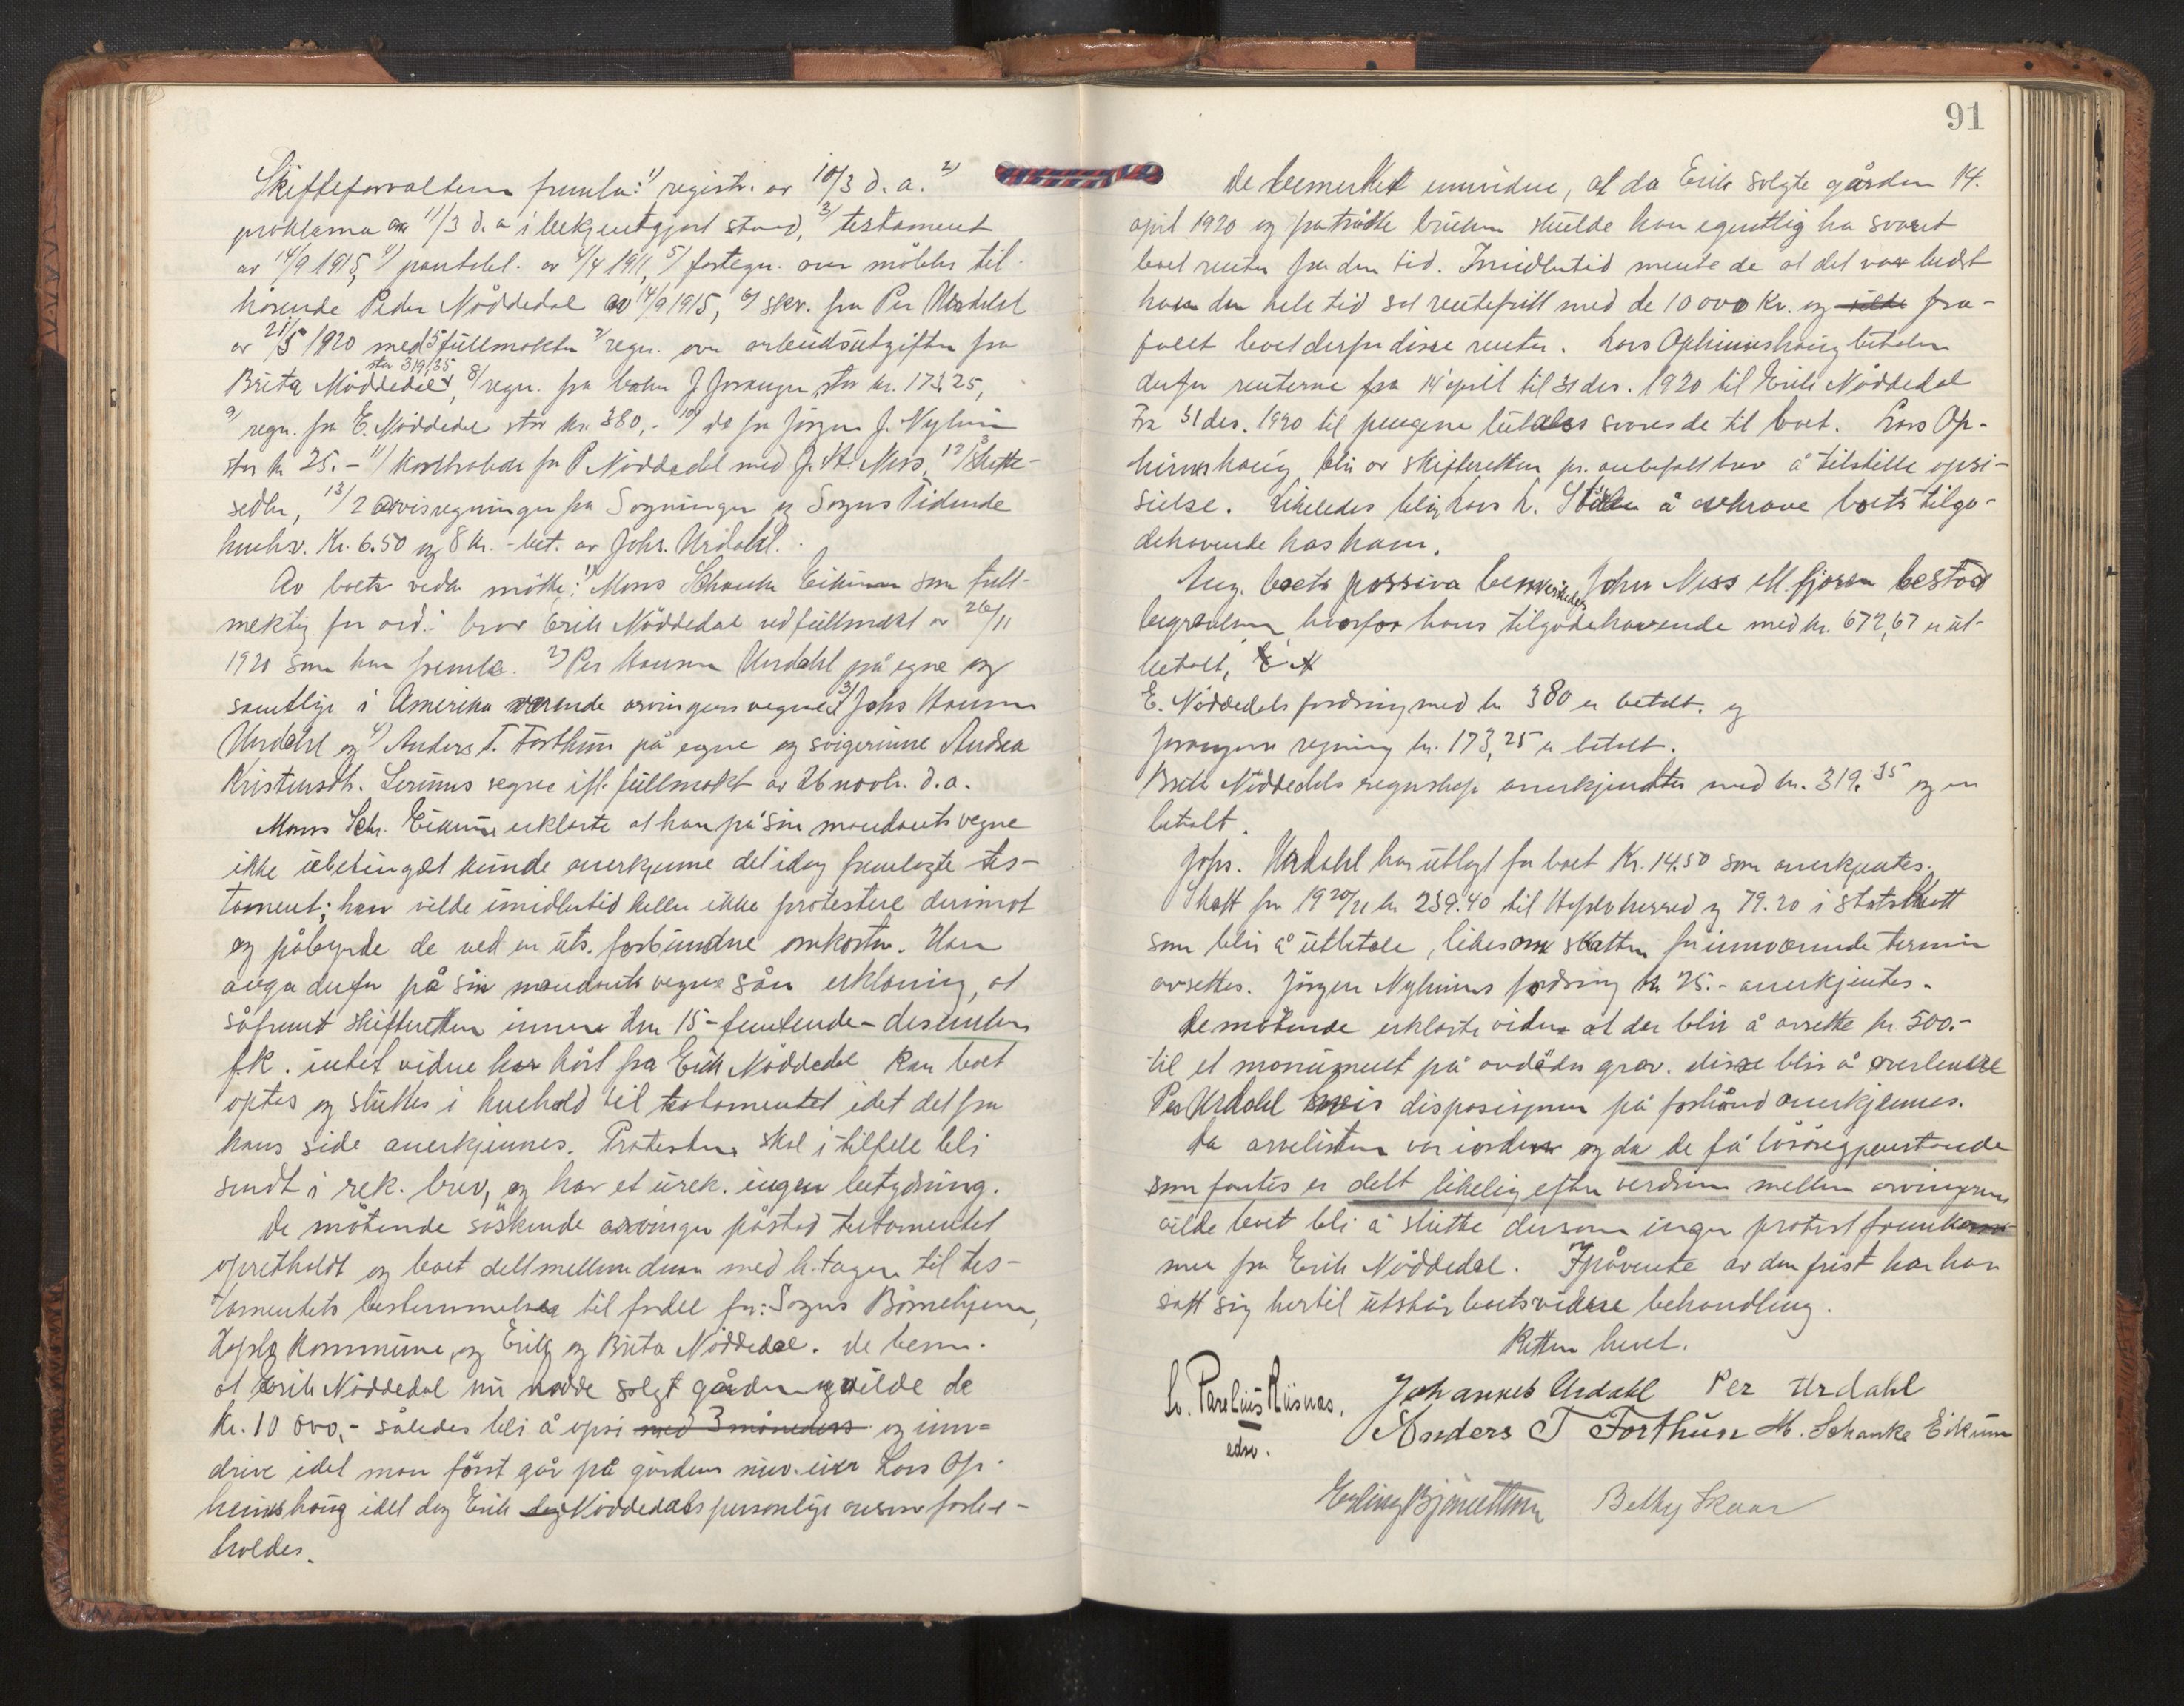 Skifteforvalteren fremla: 1) registr. av 10/3 d.a. 2)
proklama av 11/3 d.a i bekjentgjort stand, 3/ testament
av 14/9 1915, 4) pantobl. av 4/4 1911, 5/ fortegn. over møbler til-
hørende Peder Nøddedal av 14/9 1915, 6/ skr. fra Per Urdahl
av 21/5 1920 med 5 fullmakter 7/ regn. over arbeidsutgifter fra
Brita Nøddedal stor 319,35, 8/ regn. fra J. Joranger, stor kr. 173,25,
9/ regn. fra E. Nøddedal stor kr. 380,- 10/ do fra Jørgen J. Nyheim
stor kr 25.- 11/ Kontrabok for P Nøddedal med J. H. Ness, 12/ 3 skatte-
sedler, 13/ 2 avisregninger fra Sogningen og Sogns Tidende
henhv. Kr. 6.50 og 8 kr. - bet. av Johs. Urdahl.
Av boets vedk. møtte: 1) Mons Schanke Eikum som full-
mektig for avd.s bror Erik Nøddedal ved fullmakt av 26/11
1920 som han fremla. 2) Per Hansen Urdahl på egne og
samtlige i Amerika værende arvingers vegne 3/ Johs Hansen
Urdahl og 4) Anders T. Forthun på egne og svigerinne Andrea
Kristensdtr. Lerums vegne ifl. fullmakt av 26 novbr. d.a.
Mons Sch. Eikum erklærte at han på sin mandants vegne
ikke ubetinget kunde anerkjenne det idag fremlagte tes-
tament; han vilde imidlertid heller ikke protestere derimot
og påbyrde de ved en uts. forbundne omkostn. Han
avga derfor på sin mandants vegne sån erklæring, at
såfremt skifteretten innen den 15 - femtende - desember
fk. intet videre har hørt fra Erik Nøddedal kan boet
optas og sluttes i henhold til testamentet idet det fra
hans side anerkjennes. Protesten skal i tilfelle bli
sendt i rek. brev, og har et urek. ingen betydning.
De møtende søskende arvinger påstod testamentet
opretholdt og boet delt mellem dem med h. tagen til tes-
tamentets bestemmelser til fordel for: Sogns Barnehjem,
Hafslo Kommune, og Erik og Brita Nøddedal. De bem.
at Erik Nøddedal nu hadde solgt gården og vilde de
Kr. 10 000,- således bli å opsi med 3 måneders og inn-
drive idet man først går på gårdens nuv. eier Lars Op-
heimshaug idet dog Erik dog Nøddedals personlige ansvar forbe-
holdes.
91
De bemerket envidere, at da Erik solgte gården 14.
april 1920 og fratrådte bruken skulde han egentlig ha svaret
boet renter fra den tid. Imidlertid mente de at det var bedst
han den hele tid sat rentefritt med de 10 000 Kr. og vilde fra-
falt boet derfor disse renter. Lars Opheimshaug betaler
derfor renterne fra 14 april til 31 des. 1920 til Erik Nøddedal
Fra 31 des. 1920 til pengene betales svares de til boet. Lars Op-
heimshaug blir av skifteretten pr. anbefalt brev å tilstille opsi-
sielse. Likeledes blir Lars L. å avkræve boets tilgo-
dehavende hos ham.
Ang. boets passiva bemerkedes John Ness ell. fjoren bestod
begravelsen, hvorfor hans tilgodehavende med kr. 672,67 er ut-
betalt,
E. Nøddedals fordring med kr 380 er betalt. og
Jorangers regning kr. 173,25 er betalt.
Brita Nøddedals regnskap anerkjendtes med kr. 319.35 og er
betalt.
Johs. Urdahl har utlagt for boet Kr. 14.50 som anerkjentes.
Skatt for 1920/21 kr 239.40 til Hafslo herred og 79.20 i statsskatt
som blir å utbetale, likesom skatten for inneværende termin
avsettes. Jørgen Nyheims fordring kr 25.- anerkjentes.
De møtende erklærte videre at der blir å avsette kr 500.-
til et monument på avdødes grav. disse blir å overlevere
Per Urdahl hvis disposisjoner på forhånd anerkjennes.
Da arvelisten var iorden og da de få løsøregjenstande
som fantes er delt likelig efter verdien mellem arvingerne
vilde boet bli å slutte dersom ingen protest fremkom-
mer fra Erik Nøddedal. I påvente av den frist har han
satt sig hertil utstår boets videre behandling.
Retten hevet.
L. Parelius Riisnæs.
edsv.
Johannes Urdahl Per Urdahl
Anders T Forthun M. Schanke Eikum
Erling Bjørnethun Betty Skaar